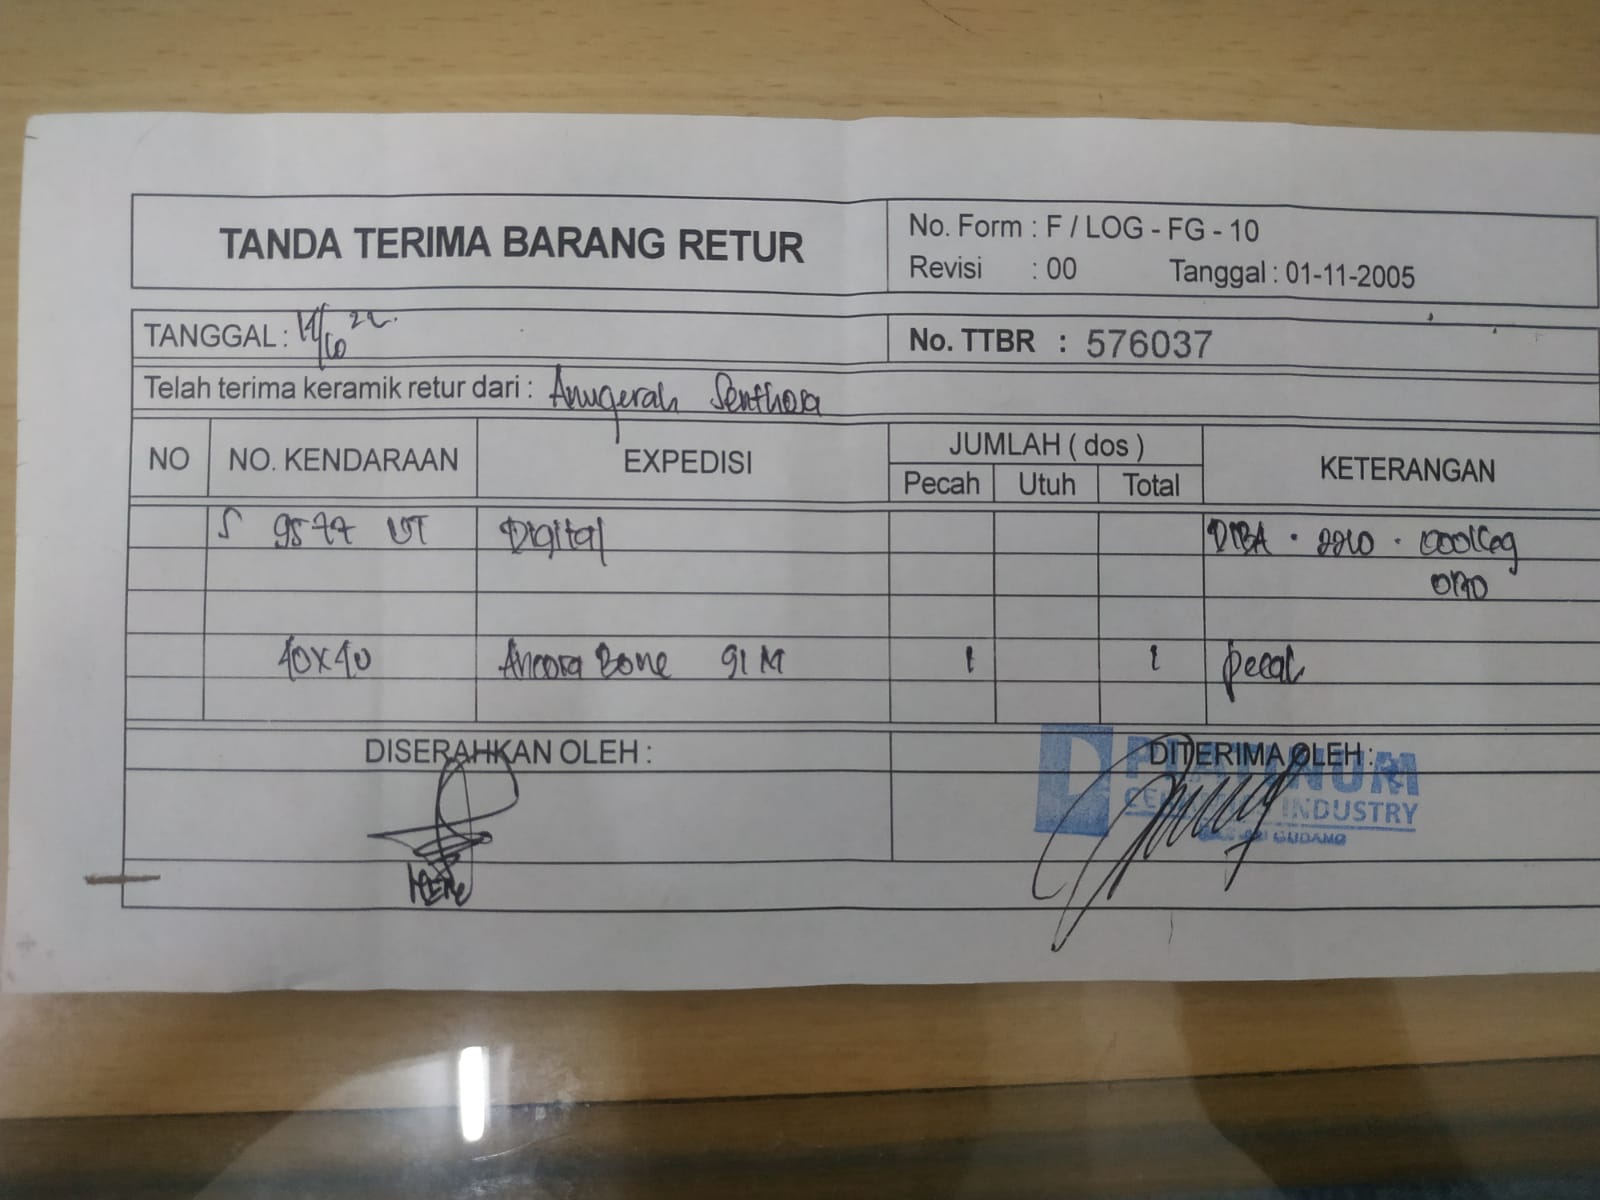 TANDA TERIMA BARANG RETUR
No. Form : F / LOG - FG - 10
Revisi : 00 Tanggal : 01-11-2005
TANGGAL : 22
No. TTBR : 576037
Telah terima keramik retur dari : Anugerah Senthosa
NO NO. KENDARAAN EXPEDISI JUMLAH ( dos ) KETERANGAN
Pecah Utuh Total
S 9577 UT Digital DIBA . 2210 .
40x40 Ancora Bone 91 M 1 1 pecah
DISERAHKAN OLEH : DITERIMA OLEH :
PLATINUM
CERAMICS INDUSTRY
GUDANG